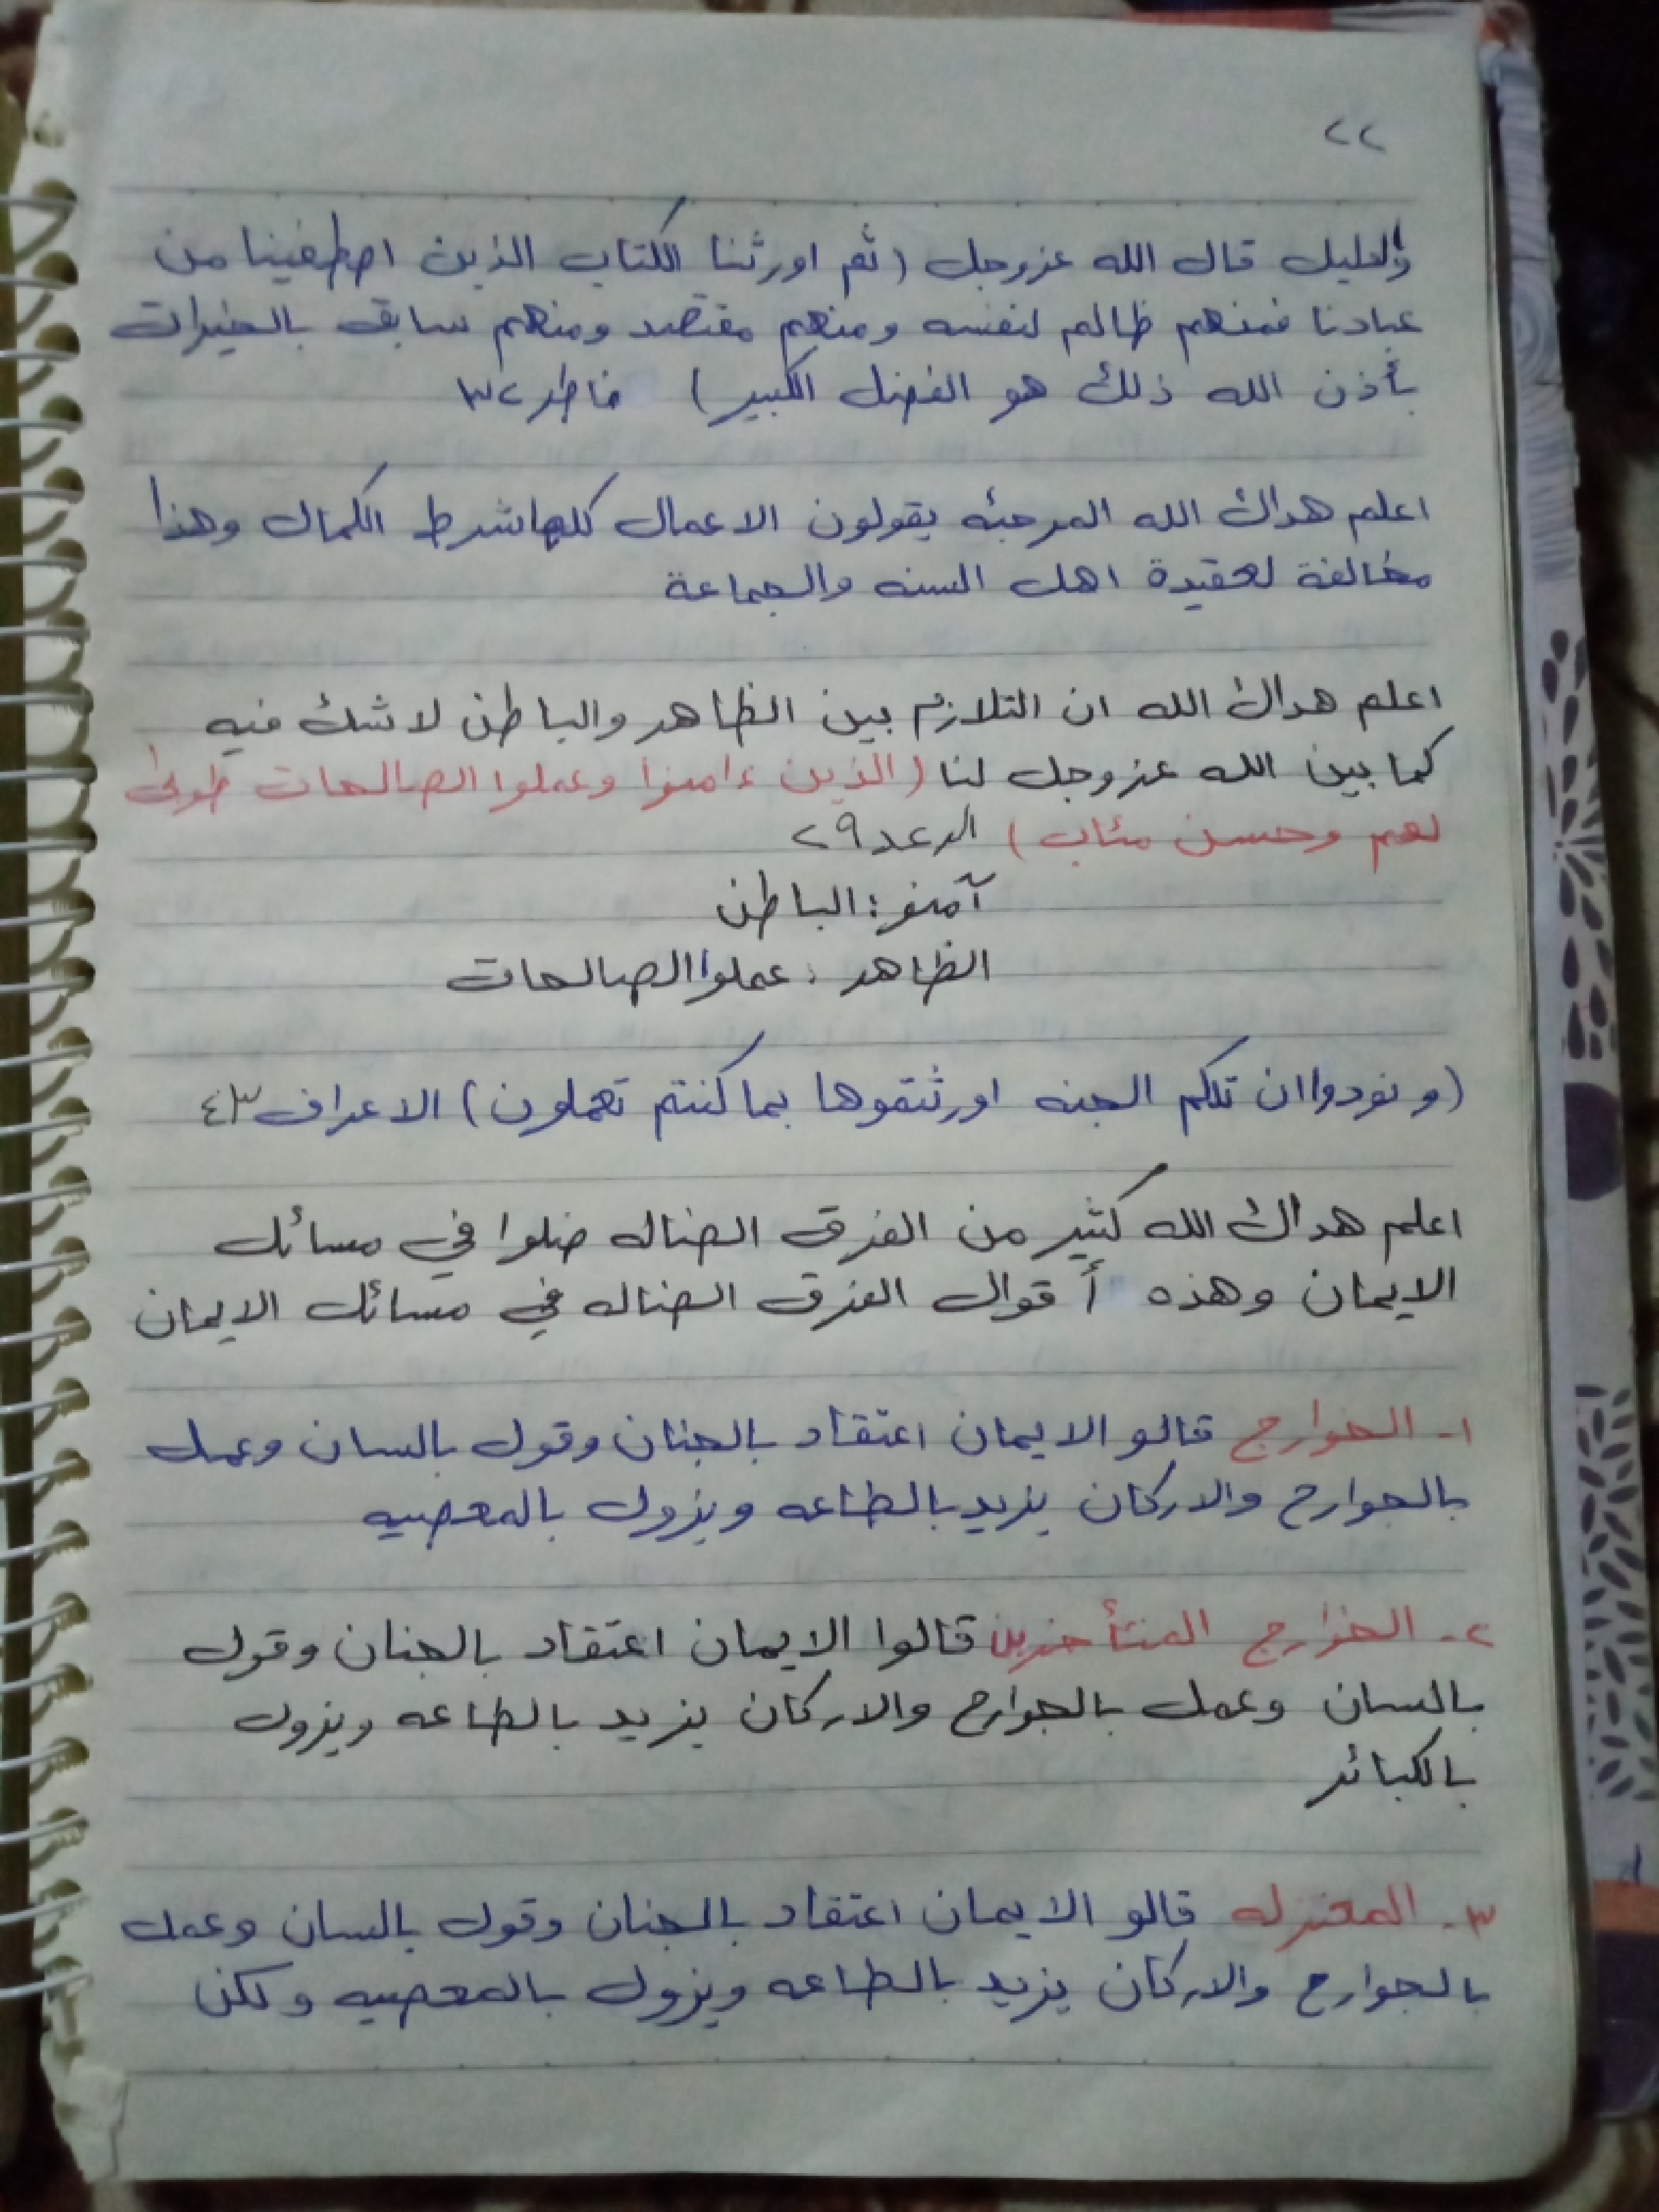 ٢٢
والدليل قال الله عزوجل (ثم اورثنا الكتاب الذين اصطفينا من
عبادنا فمنهم ظالم لنفسه ومنهم مقتصد ومنهم سابق بالخيرات
بأذن الله ذلك هو الفضل الكبير) فاطر ٣٢
اعلم هداك الله المرجئه يقولون الاعمال كلها شرط الكمال وهذا
مخالفة لعقيدة اهل السنه والجماعة
اعلم هداك الله ان التلازم بين الظاهر والباطن لاشك فيه
كما بين الله عزوجل لنا (الذين ءامنوا وعملوا الصالحات طوبى
لهم وحسن مئاب) الرعد ٢٩
آمنو : الباطن
الظاهر : عملوا الصالحات
(ونودوا ان تلكم الجنه اورثتموها بما كنتم تعملون) الاعراف ٤٣
اعلم هداك الله كثير من الفرق الضاله ضلوا في مسائل
الايمان وهذه أقوال الفرق الضاله في مسائل الايمان
١- الخوارج قالو الايمان اعتقاد بالجنان وقول بالسان وعمل
بالجوارح والاركان يزيد بالطاعه ويزول بالمعصيه
٢- الخوارج المتأخرين قالوا الايمان اعتقاد بالجنان وقول
بالسان وعمل بالجوارح والاركان يزيد بالطاعه ويزول
بالكبائر
٣- المعتزله قالو الايمان اعتقاد بالجنان وقول بالسان وعمل
بالجوارح والاركان يزيد بالطاعه ويزول بالمعصيه ولكن